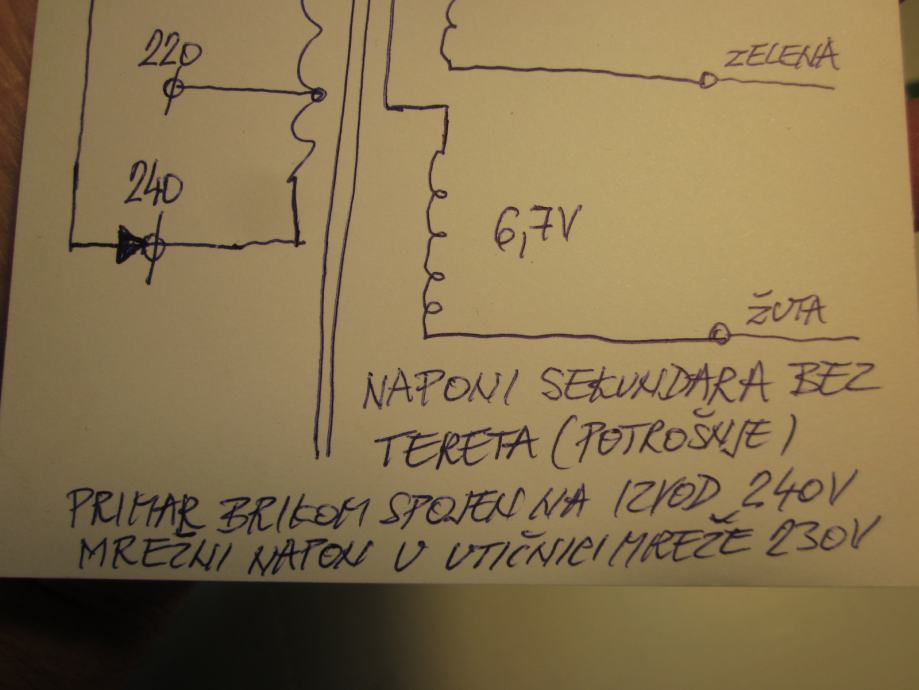 220
ZELENA
240
6,7V
ŽUTA
NAPONI SEKUNDARA BEZ
TERETA (POTROŠNJE)
PRIMAR BRIKOM SPOJEN NA IZVOD 240V
MREŽNI NAPON U UTIČNICI MREŽE 230V